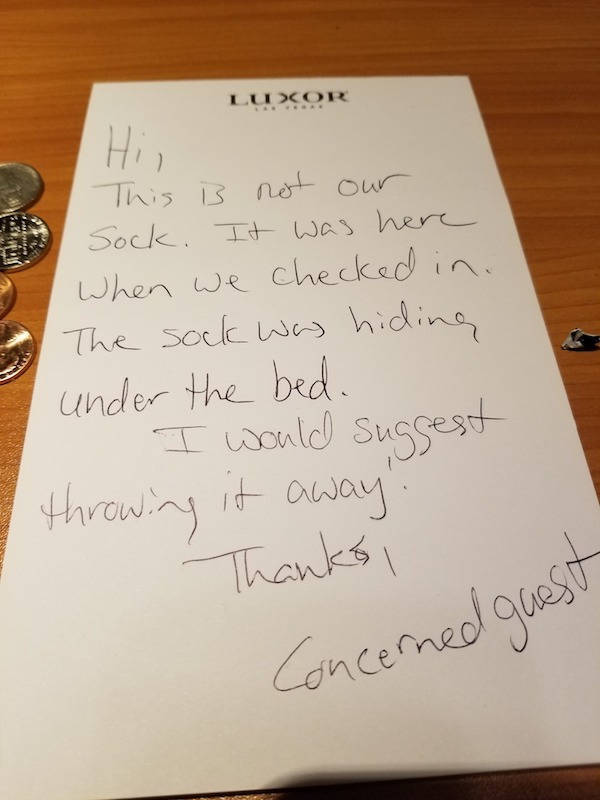 LUXOR
LAS VEGAS
Hi,
This is not our
Sock. It was here
when we checked in.
The sock was hiding
under the bed.
I would suggest
throwing it away!
Thanks,
Concerned guest